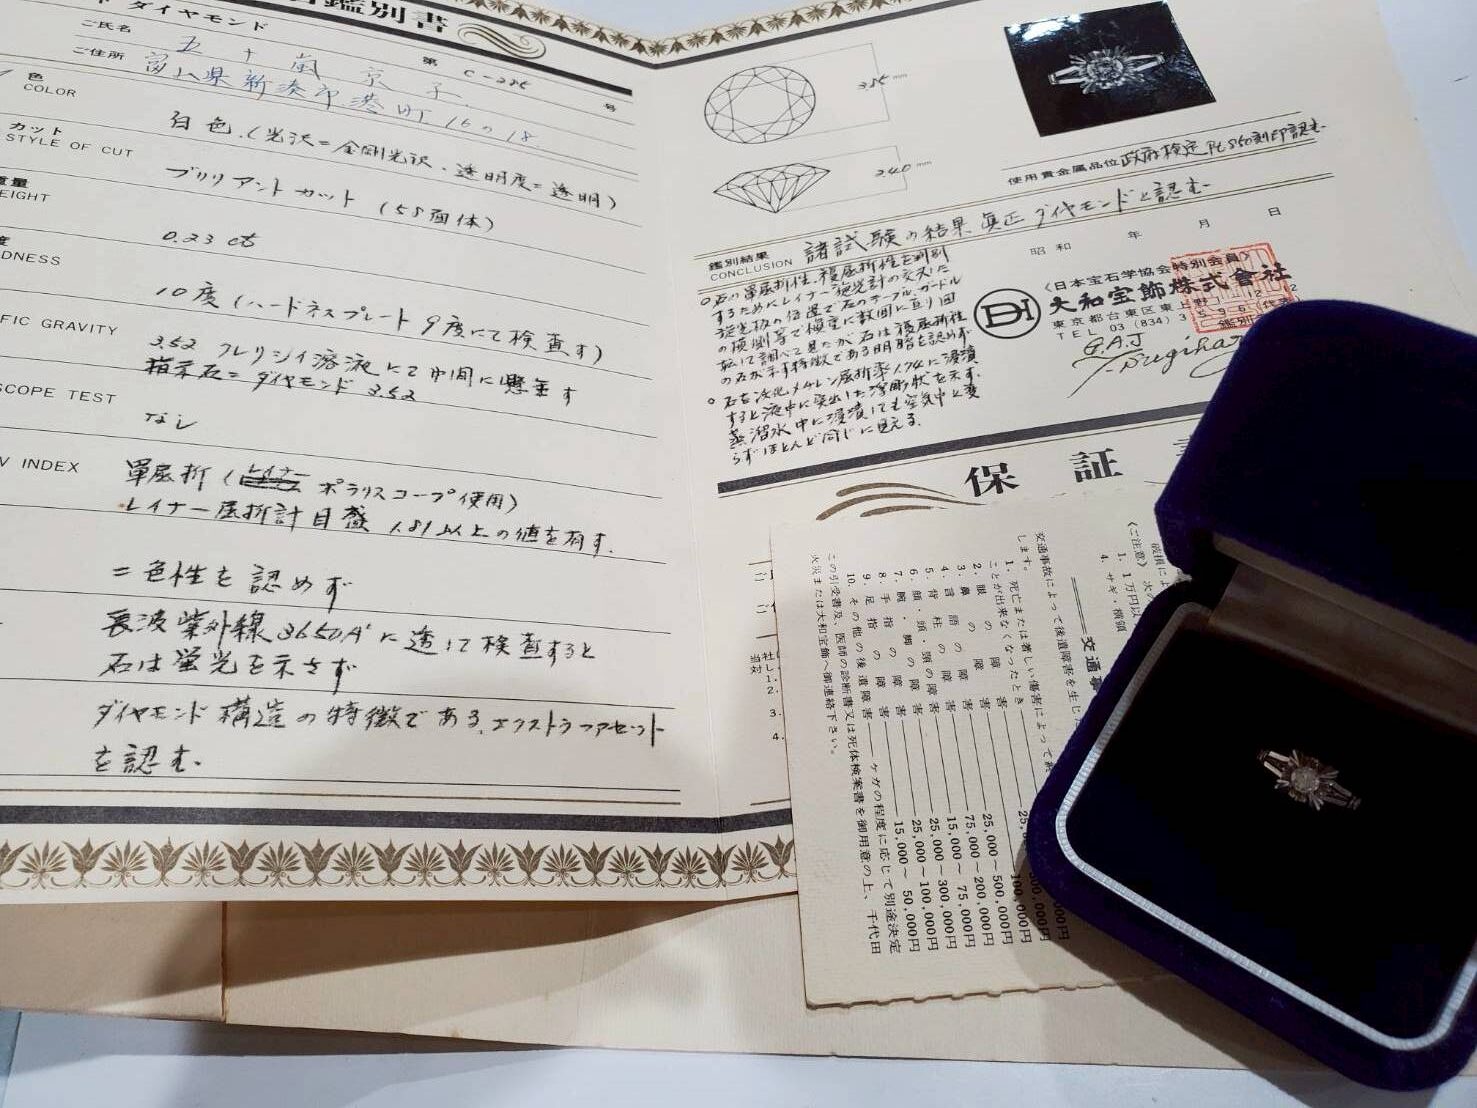 鑑別書
ダイヤモンド
第 C-225 号
ご氏名 五十嵐 京子
ご住所 富山県新湊市港町16の18
色
COLOR
白色.(光沢=金剛光沢・透明度=透明)
カット
STYLE OF CUT
ブリリアントカット (58面体)
重量
EIGHT
0.23 ct
度
DNESS
10度 (ハードネスプレート9度にて検査す)
FIC GRAVITY
3.52 クレリシイ溶液にて中間に懸垂す
指示石=ダイヤモンド 3.52
SCOPE TEST
なし
V INDEX
単屈折 ( ポラリスコープ使用)
レイナー屈折計目盛 1.81以上の値を有す.
二色性を認めず
長波紫外線3650A°に透して検査すると
石は蛍光を示さず
ダイヤモンド構造の特徴である.エクストラファセット
を認む.
mm
240 mm
使用貴金属品位 政府検定Pt850刻印認む.
鑑別結果
CONCLUSION
諸試験の結果 真正 ダイヤモンドと認む.
○石の単屈折性.複屈折性を判別
するためにレイナー旋光計の交叉した
旋光板の位置で石のテーブル、ガードル
の横側等で慎重に数回に亘り回
転して調べて見たが 石は複屈折性
の石が示す特徴である明暗を認めず
○石を沃化メチレン屈折率1.74に浸漬
すると液中に突出した浮彫状を示す.
蒸溜水中に浸漬しても空気中と変
らずほとんど同じに見える.
昭和 年 月 日
〈日本宝石学協会特別会員〉
DH 大和宝飾株式会社
東京都台東区東上野
TEL 03 (834) 3
鑑別
代表
G.A.J
T. Sugihar
保証
破損によ
〈ご注意〉 次の
1. 1万円以
4. サギ・横領
交通事
交通事故によって後遺障害を生じた
します。
1. 死亡または著しい傷害によって終
ことが出来なくなったとき
2. 眼の障害 25,000~500,000円
3. 鼻の障害 75,000~200,000円
4. 言語の障害 15,000~ 75,000円
5. 背柱の障害 25,000~300,000円
6. 顔・頭・頸の障害 25,000~100,000円
7. 腕・脚の障害 15,000~ 50,000円
8. 手指の障害
9. 足指の障害
10. その他の後遺障害 ケガの程度に応じて別途決定
この引受書及、医師の診断書又は死体検案書を御用意の上、千代田
火災または大和宝飾へ御連絡下さい。